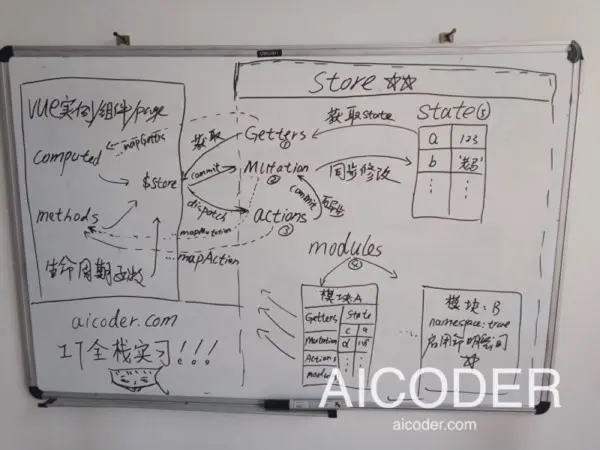 Store ☆☆
vue实例/组件/page
computed
mapGetters
$store
methods
生命周期函数
获取
commit
dispatch
mapMutation
mapAction
Getters
①
Mutation
②
actions
③
获取State
同步修改
commit
State⑤
a 123
b
⋮ ⋮
modules
④
模块:A
Getters State
c 9
Mutation d
Actions ⋮ ⋮
模块:B
namespace:true
启用命名空间
☆
aicoder.com
IT全栈实习!!!
AICODER
aicoder.com